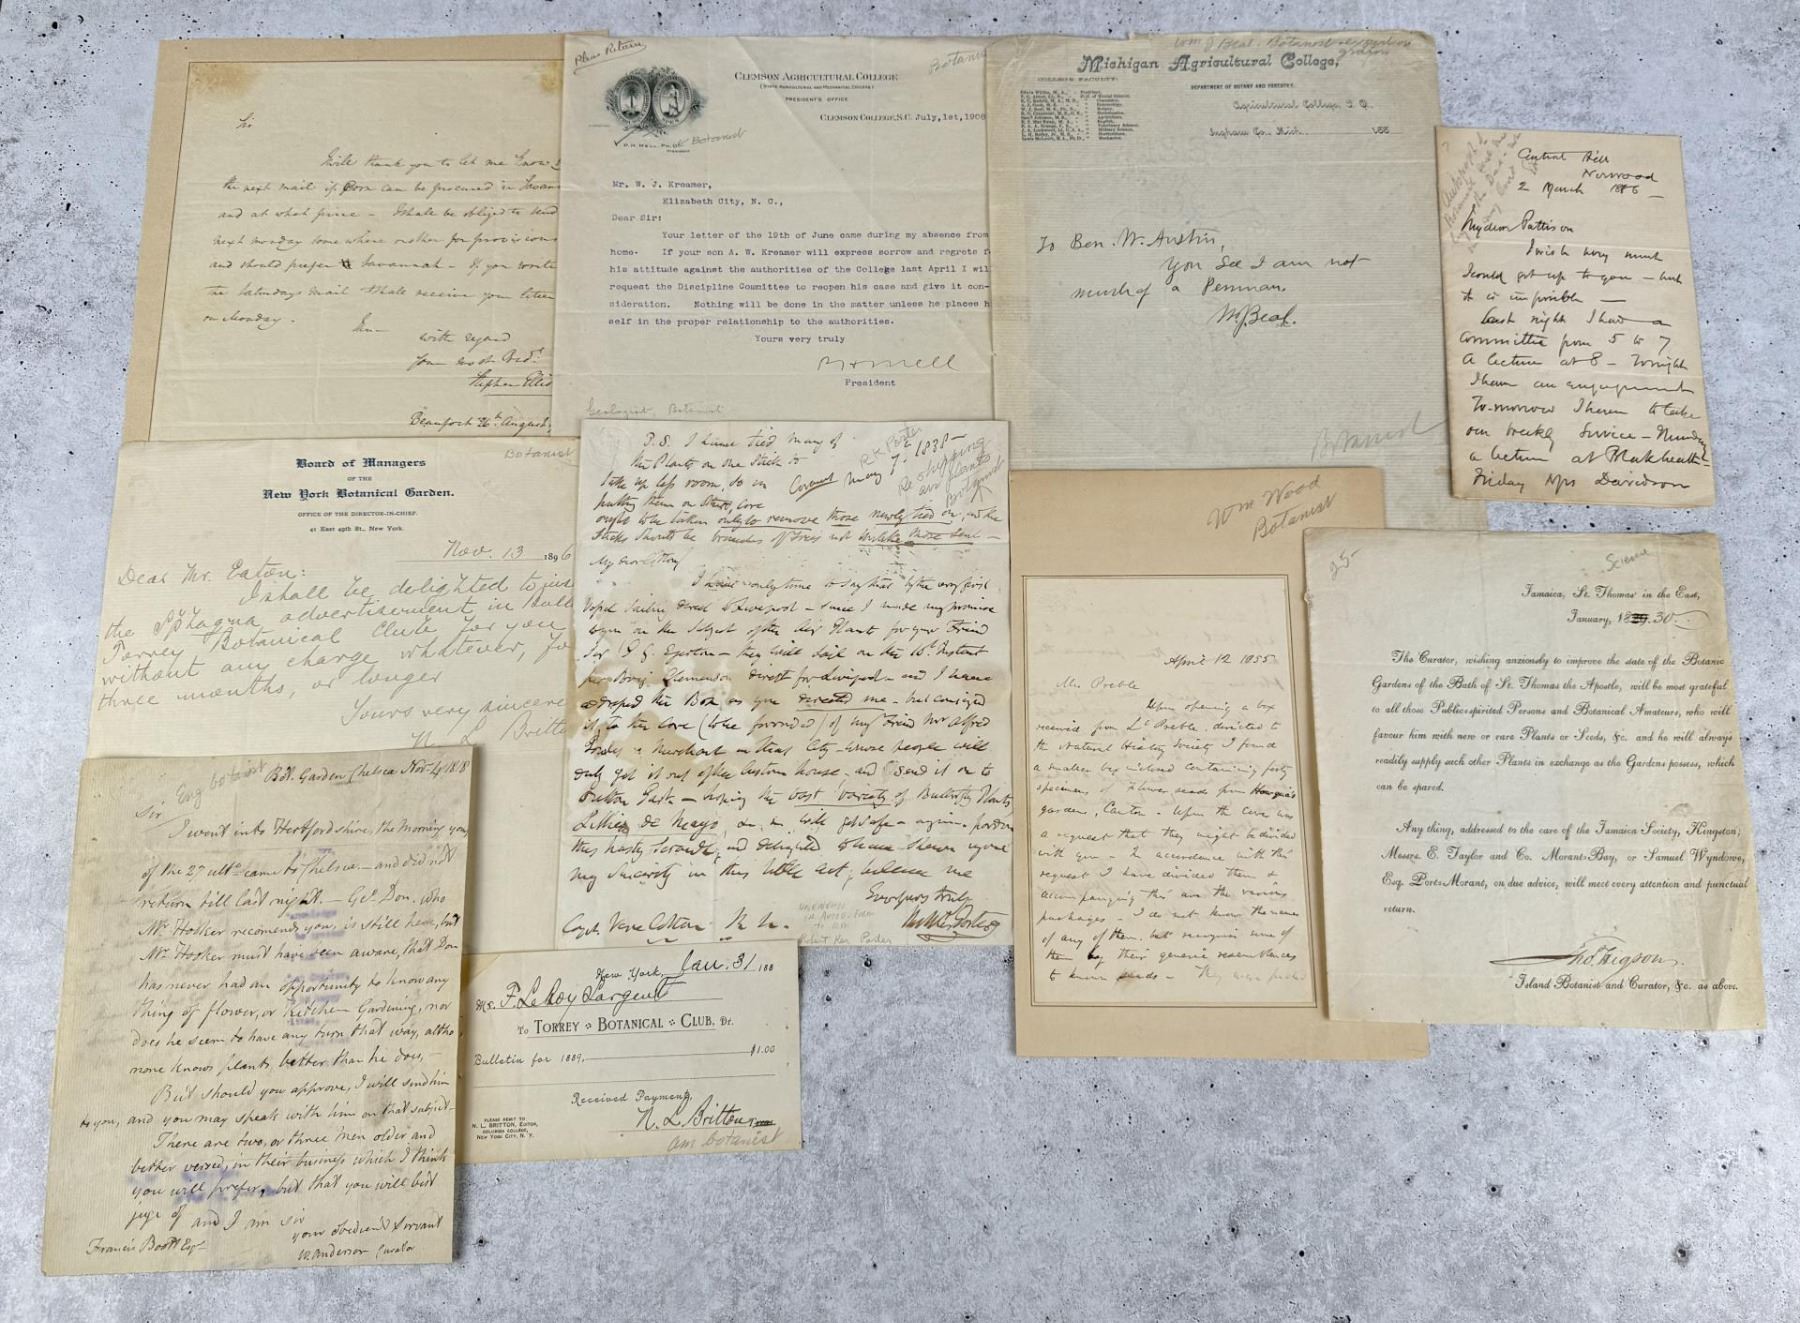 Sir
I will thank you to let me know
the next mail if Corn can be procured in
and at what price - I shall be obliged to send
next monday some where or other for provisions
and should prefer Savannah - If you write
Saturdays mail I shall receive your letter
on Monday.
with regard
Stephen Ellis
Beaufort 26th August
Please Return
Botanis
CLEMSON AGRICULTURAL COLLEGE
(STATE AGRICULTURAL AND MECHANICAL COLLEGE)
PRESIDENT'S OFFICE
CLEMSON COLLEGE, S.C. July, 1st, 1908
P.H. MELL, PH.D. Botanist
PRESIDENT
Mr. W. J. Kreamer,
Elizabeth City, N. C.,
Dear Sir:
Your letter of the 19th of June came during my absence from
home. If your son A. W. Kreamer will express sorrow and regrets f
his attitude against the authorities of the College last April I wil
request the Discipline Committee to reopen his case and give it con-
sideration. Nothing will be done in the matter unless he places h
self in the proper relationship to the authorities.
Yours very truly
P H Mell
President
Geologist, Botanist
Wm J Beal. Botanist
Michigan Agricultural College,
COLLEGE FACULTY:
DEPARTMENT OF BOTANY AND FORESTRY.
Agricultural College, P. O.
Ingham Co. Mich. 188
To Ben. W. Austin,
You see I am not
much of a Penman.
W. J. Beal.
Botanist
Central Hill
Norwood
2 March 1886
My dear Pattison
I wish very much
I could get up to you - but
it is impossible -
Last night I had a
committee from 5 to 7
a lecture at 8 - Tonight
I have an engagement
To-morrow I have to take
our weekly service - Monday
a lecture at Blackheath -
Friday Mrs Davidson
Botanist
Board of Managers
OF THE
New York Botanical Garden.
OFFICE OF THE DIRECTOR-IN-CHIEF.
41 East 49th St., New York.
Nov. 13 1896
Dear Mr. Eaton:
I shall be delighted to
the Sphagna advertisement in Bull
Torrey Botanical Club for you
without any charge whatever, fo
three months, or longer
Yours very sincere
N L Britto
P.S. I have tied many of
the Plants on one Stick to
take up less room, so in
putting them on sticks, care
ought to be taken only to remove those newly tied on, and the
sticks should be branches of trees not unlike those sent -
May 7 1838
My dear
I have only time to say that by the very first
Vessel sailing direct to Liverpool - since I made my promise
to you on the subject of the Air Plant for your Friend
Sir P. G. Egerton - they will sail on the
direct for Liverpool and I have
addressed the Box as you directed me - but consigned
it to the care (to be forwarded) of my Friend Mr Alfred
a Merchant in that City - whose people will
duly get it out of the Custom house - and send it on to
Oulton Park - hoping the vast variety of Butterfly Plants,
will get safe - again - pardon
this hasty scrawl, and delighted to have shown you
my sincerity in this little act, believe me
Ever yours truly
R K Porter
Capt. Vere Cotton R N.
Robert Ker Porter
Wm Wood
Botanist
April 12 1855
Mr. Preble
Upon opening a box
received from Lt Preble, directed to
the Natural History Society I found
a smaller box inclosed containing forty
specimens of Flower seeds from Howqua's
garden, Canton. Upon the cover was
a request that they might be divided
with you - In accordance with this
request I have divided them &
accompanying this are the various
packages - I do not know the names
of any of them, but recognize some of
them by their generic resemblances
to known seeds -
25-
Science
Jamaica, St. Thomas' in the East,
January, 1829. 30
The Curator, wishing anxiously to improve the state of the Botanic
Gardens of the Bath of St. Thomas the Apostle, will be most grateful
to all those Public-spirited Persons and Botanical Amateurs, who will
favour him with new or rare Plants or Seeds, &c. and he will always
readily supply such other Plants in exchange as the Gardens possess, which
can be spared.
Any thing, addressed to the care of the Jamaica Society, Kingston;
Messrs E. Taylor and Co. Morant-Bay, or Samuel Wyndowe,
Esq. Port-Morant, on due advice, will meet every attention and punctual
return.
Tho. Higson
Island Botanist and Curator, &c. as above.
Eng botanist
Bot. Garden Chelsea Nov. 4 1818
Sir
I went into Hertfordshire, the morning you
of the 27 ulto came to Chelsea - and did not
return till last night. - Geo. Don, who
Mr. Hooker recomends you, is still here, but
Mr. Hooker must have been aware, that Don
has never had an opportunity to know any
thing of flower, or kitchen Gardening, nor
does he seem to have any turn that way, altho
none knows plants better than he does, -
But should you approve, I will send him
to you, and you may speak with him on that subject -
There are two, or three men older and
better versed, in their business which I think
you will prefer, but that you will best
juge of and I am sir
your obedient Servant
Francis Boott Esqr W. Anderson Curator
New York, Jan. 31 188
Ms. F. LeRoy Sargent
To TORREY BOTANICAL CLUB, Dr.
Bulletin for 1889, $1.00
Received Payment,
PLEASE REMIT TO
N. L. BRITTON, EDITOR,
COLUMBIA COLLEGE,
NEW YORK CITY, N. Y.
N. L. Britton
am botanist